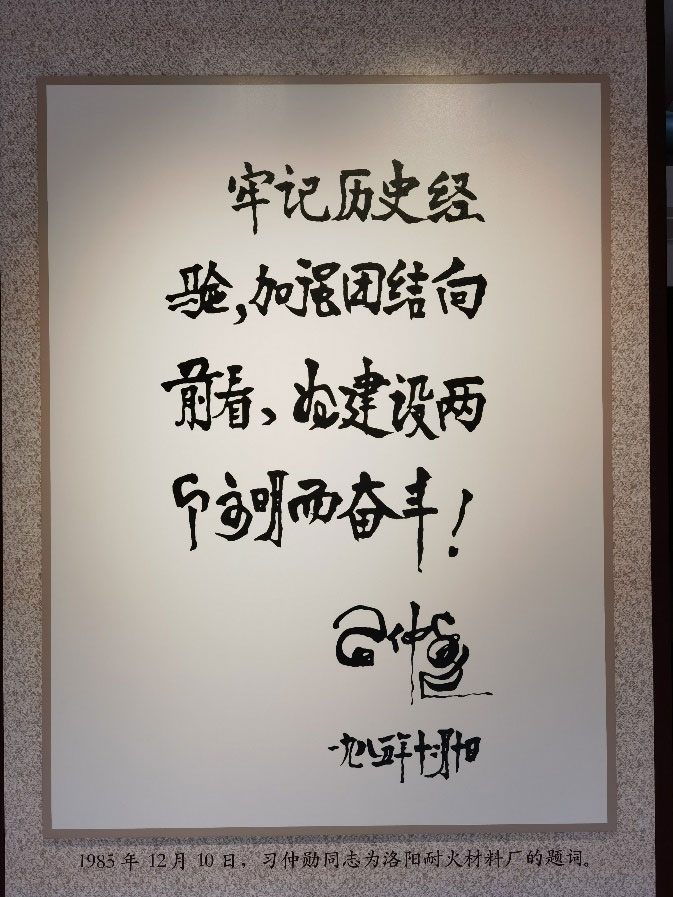 牢记历史经
验，加强团结向
前看、为建设两
个文明而奋斗！
习仲勋
一九八五年十二月十日
1985 年 12 月 10 日，习仲勋同志为洛阳耐火材料厂的题词。